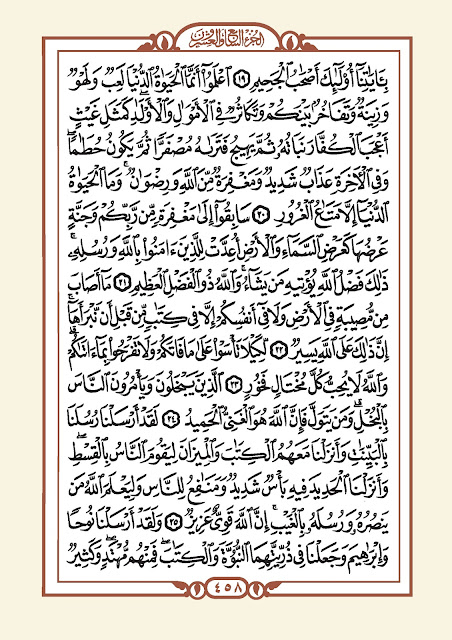 الجزء السابع والعشرون
بِـَٔايَٰتِنَآ أُوْلَٰٓئِكَ أَصْحَٰبُ ٱلْجَحِيمِ ١٩ ٱعْلَمُوٓاْ أَنَّمَا ٱلْحَيَوٰةُ ٱلدُّنْيَا لَعِبٌ وَلَهْوٌ
وَزِينَةٌ وَتَفَاخُرٌۢ بَيْنَكُمْ وَتَكَاثُرٌ فِى ٱلْأَمْوَٰلِ وَٱلْأَوْلَٰدِۖ كَمَثَلِ غَيْثٍ
أَعْجَبَ ٱلْكُفَّارَ نَبَاتُهُۥ ثُمَّ يَهِيجُ فَتَرَىٰهُ مُصْفَرًّا ثُمَّ يَكُونُ حُطَٰمًاۖ
وَفِى ٱلْأَخِرَةِ عَذَابٌ شَدِيدٌ وَمَغْفِرَةٌ مِّنَ ٱللَّهِ وَرِضْوَٰنٌۚ وَمَا ٱلْحَيَوٰةُ
ٱلدُّنْيَآ إِلَّا مَتَٰعُ ٱلْغُرُورِ ٢٠ سَابِقُوٓاْ إِلَىٰ مَغْفِرَةٍ مِّن رَّبِّكُمْ وَجَنَّةٍ
عَرْضُهَا كَعَرْضِ ٱلسَّمَآءِ وَٱلْأَرْضِ أُعِدَّتْ لِلَّذِينَ ءَامَنُواْ بِٱللَّهِ وَرُسُلِهِۦۚ
ذَٰلِكَ فَضْلُ ٱللَّهِ يُؤْتِيهِ مَن يَشَآءُۚ وَٱللَّهُ ذُو ٱلْفَضْلِ ٱلْعَظِيمِ ٢١ مَآ أَصَابَ
مِن مُّصِيبَةٍ فِى ٱلْأَرْضِ وَلَا فِىٓ أَنفُسِكُمْ إِلَّا فِى كِتَٰبٍ مِّن قَبْلِ أَن نَّبْرَأَهَآۚ
إِنَّ ذَٰلِكَ عَلَى ٱللَّهِ يَسِيرٌ ٢٢ لِّكَيْلَا تَأْسَوْاْ عَلَىٰ مَا فَاتَكُمْ وَلَا تَفْرَحُواْ بِمَآ ءَاتَىٰكُمْۗ
وَٱللَّهُ لَا يُحِبُّ كُلَّ مُخْتَالٍ فَخُورٍ ٢٣ ٱلَّذِينَ يَبْخَلُونَ وَيَأْمُرُونَ ٱلنَّاسَ
بِٱلْبُخْلِۗ وَمَن يَتَوَلَّ فَإِنَّ ٱللَّهَ هُوَ ٱلْغَنِىُّ ٱلْحَمِيدُ ٢٤ لَقَدْ أَرْسَلْنَا رُسُلَنَا
بِٱلْبَيِّنَٰتِ وَأَنزَلْنَا مَعَهُمُ ٱلْكِتَٰبَ وَٱلْمِيزَانَ لِيَقُومَ ٱلنَّاسُ بِٱلْقِسْطِۖ
وَأَنزَلْنَا ٱلْحَدِيدَ فِيهِ بَأْسٌ شَدِيدٌ وَمَنَٰفِعُ لِلنَّاسِ وَلِيَعْلَمَ ٱللَّهُ مَن
يَنصُرُهُۥ وَرُسُلَهُۥ بِٱلْغَيْبِۚ إِنَّ ٱللَّهَ قَوِىٌّ عَزِيزٌ ٢٥ وَلَقَدْ أَرْسَلْنَا نُوحًا
وَإِبْرَٰهِيمَ وَجَعَلْنَا فِى ذُرِّيَّتِهِمَا ٱلنُّبُوَّةَ وَٱلْكِتَٰبَۖ فَمِنْهُم مُّهْتَدٍۖ وَكَثِيرٌ
٤٥٨